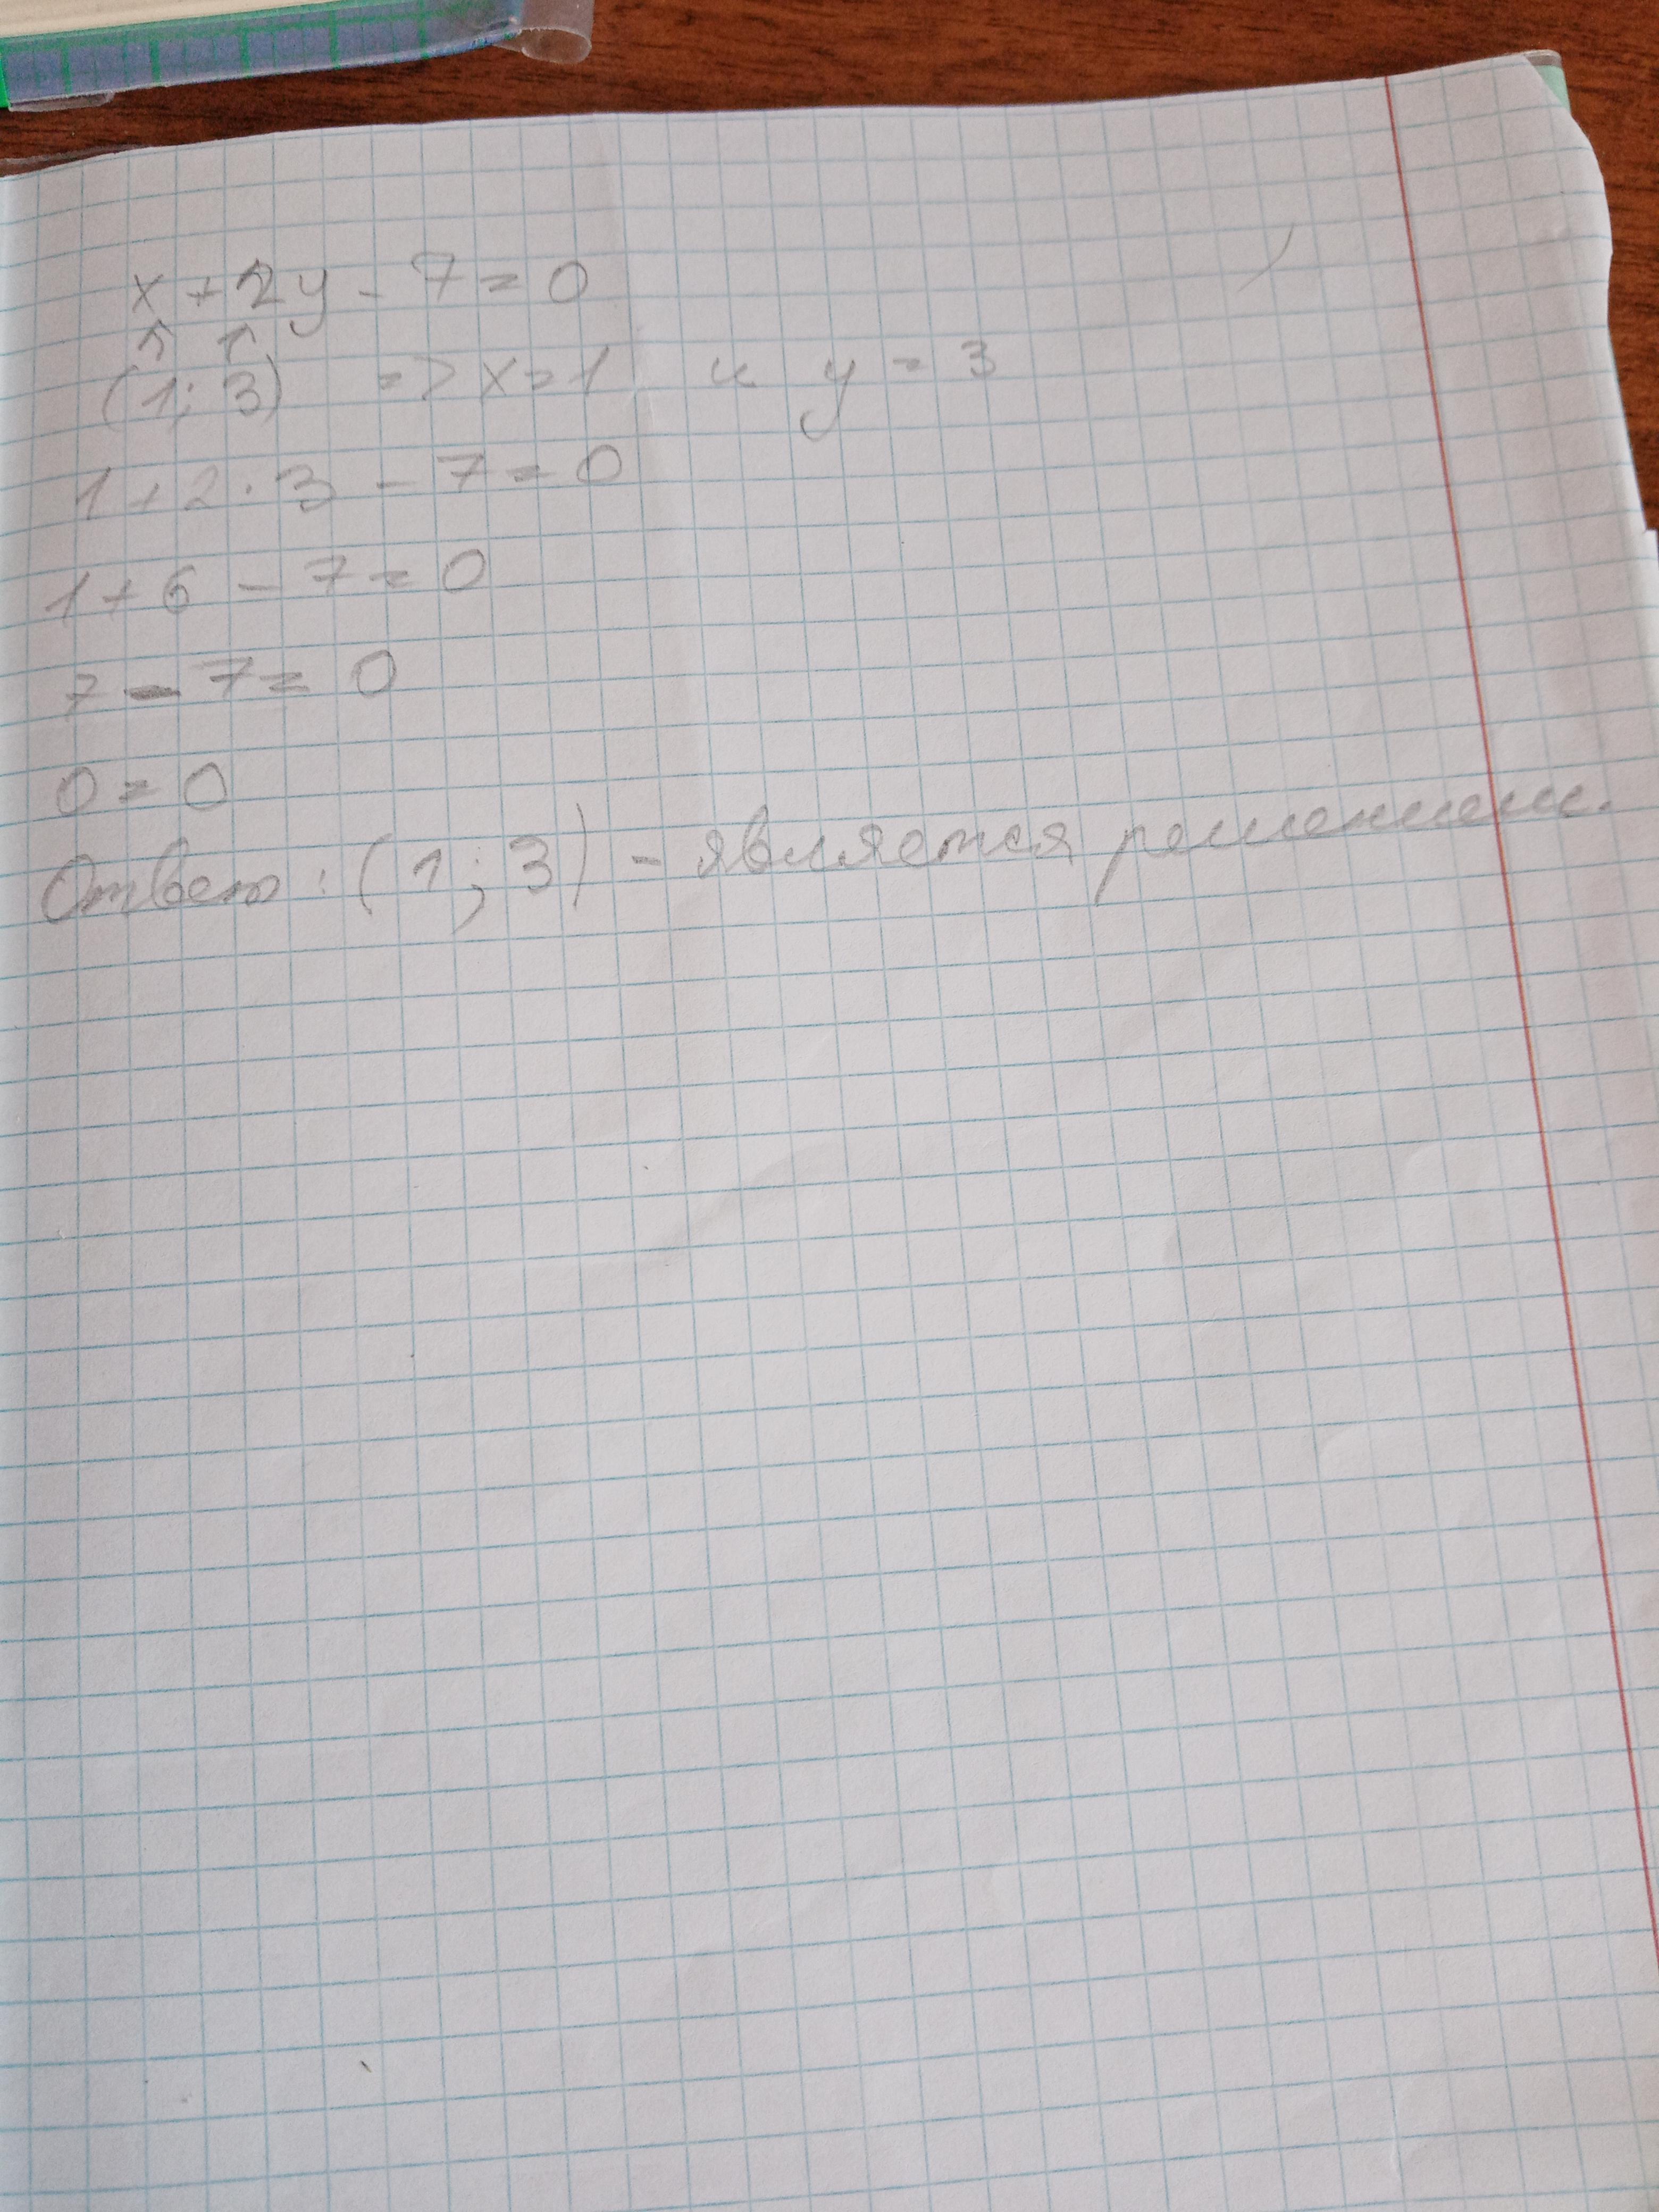 x + 2y - 7 = 0
↑ ↑
(1; 3) => x = 1 и y = 3
1 + 2 · 3 - 7 = 0
1 + 6 - 7 = 0
7 - 7 = 0
0 = 0
Ответ: (1; 3) - является решением.